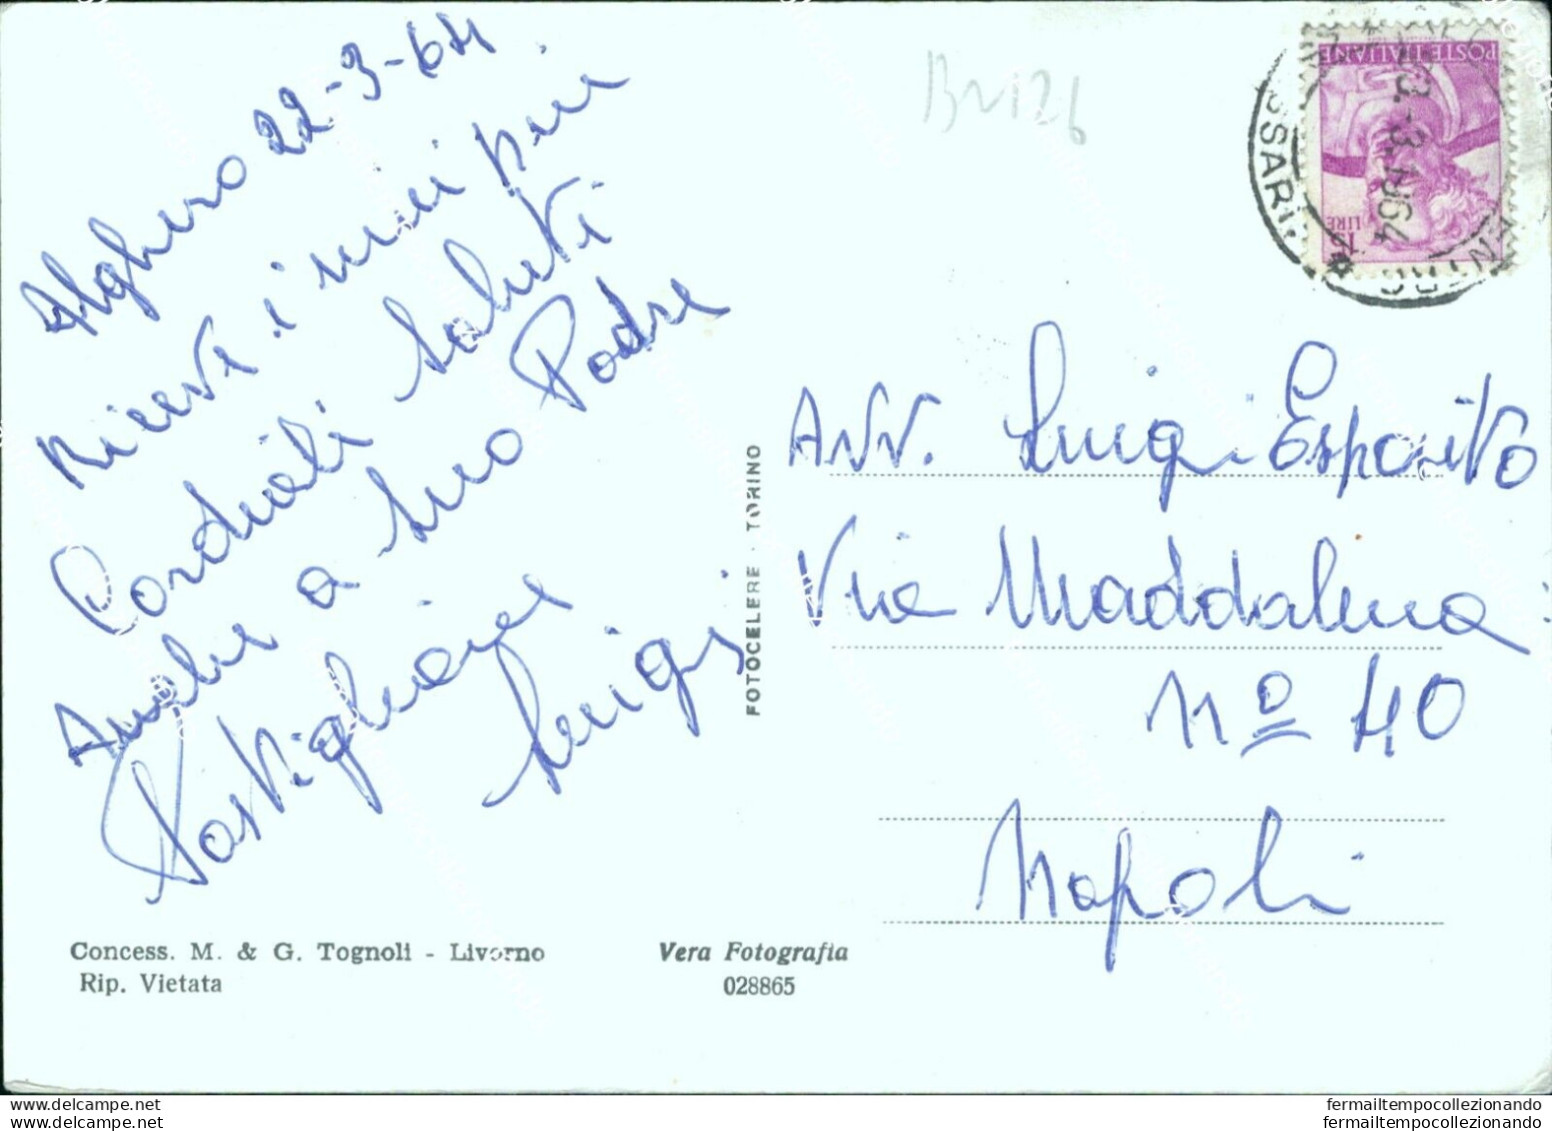 Alghero 22-3-64
Ricevi i miei più
Cordiali Saluti
Anche a tuo Padre
Luigi
Bn126
POSTE ITALIANE
LIRE 15
23.-3.1964
SSARI
FOTOCELERE - TORINO
Avv. Luigi Esposito
Via Maddalena
N° 40
Napoli
Concess. M. & G. Tognoli - Livorno
Rip. Vietata
Vera Fotografia
028865
www.delcampe.net
www.delcampe.net
fermailtempocollezionando
fermailtempocollezionando